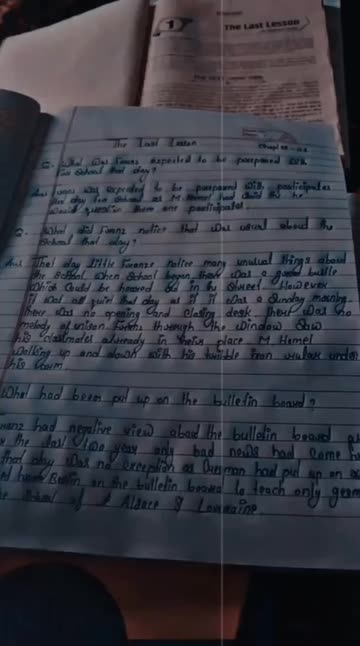 1
The Last Lesson
The Last Lesson
Q. What was Franz expected to be prepared with
for School that day?
Ans Franz was expected to be prepared with participles
that day for School as M Hamel had said that he
would question them on participles.
Q. What did Franz notice that was unusual about the
School that day?
Ans That day little Franz notice many unusual things about
the School. When School began there was a great bustle
which could be heared out in the Street. However
it was all quiet that day as if it was a Sunday morning.
There was no opening and closing desk, there was no
melody of unison. Franz through the window Saw
his classmates already in their place M Hamel
Walking up and down with his terrible iron ruler under
his arm.
What had been put up on the bulletin board?
had negative view about the bulletin board
the last two year only bad news had come
that day was no exception as German had put up an
from Berlin on the bulletin board to teach only
School of Alsace & Lorraine